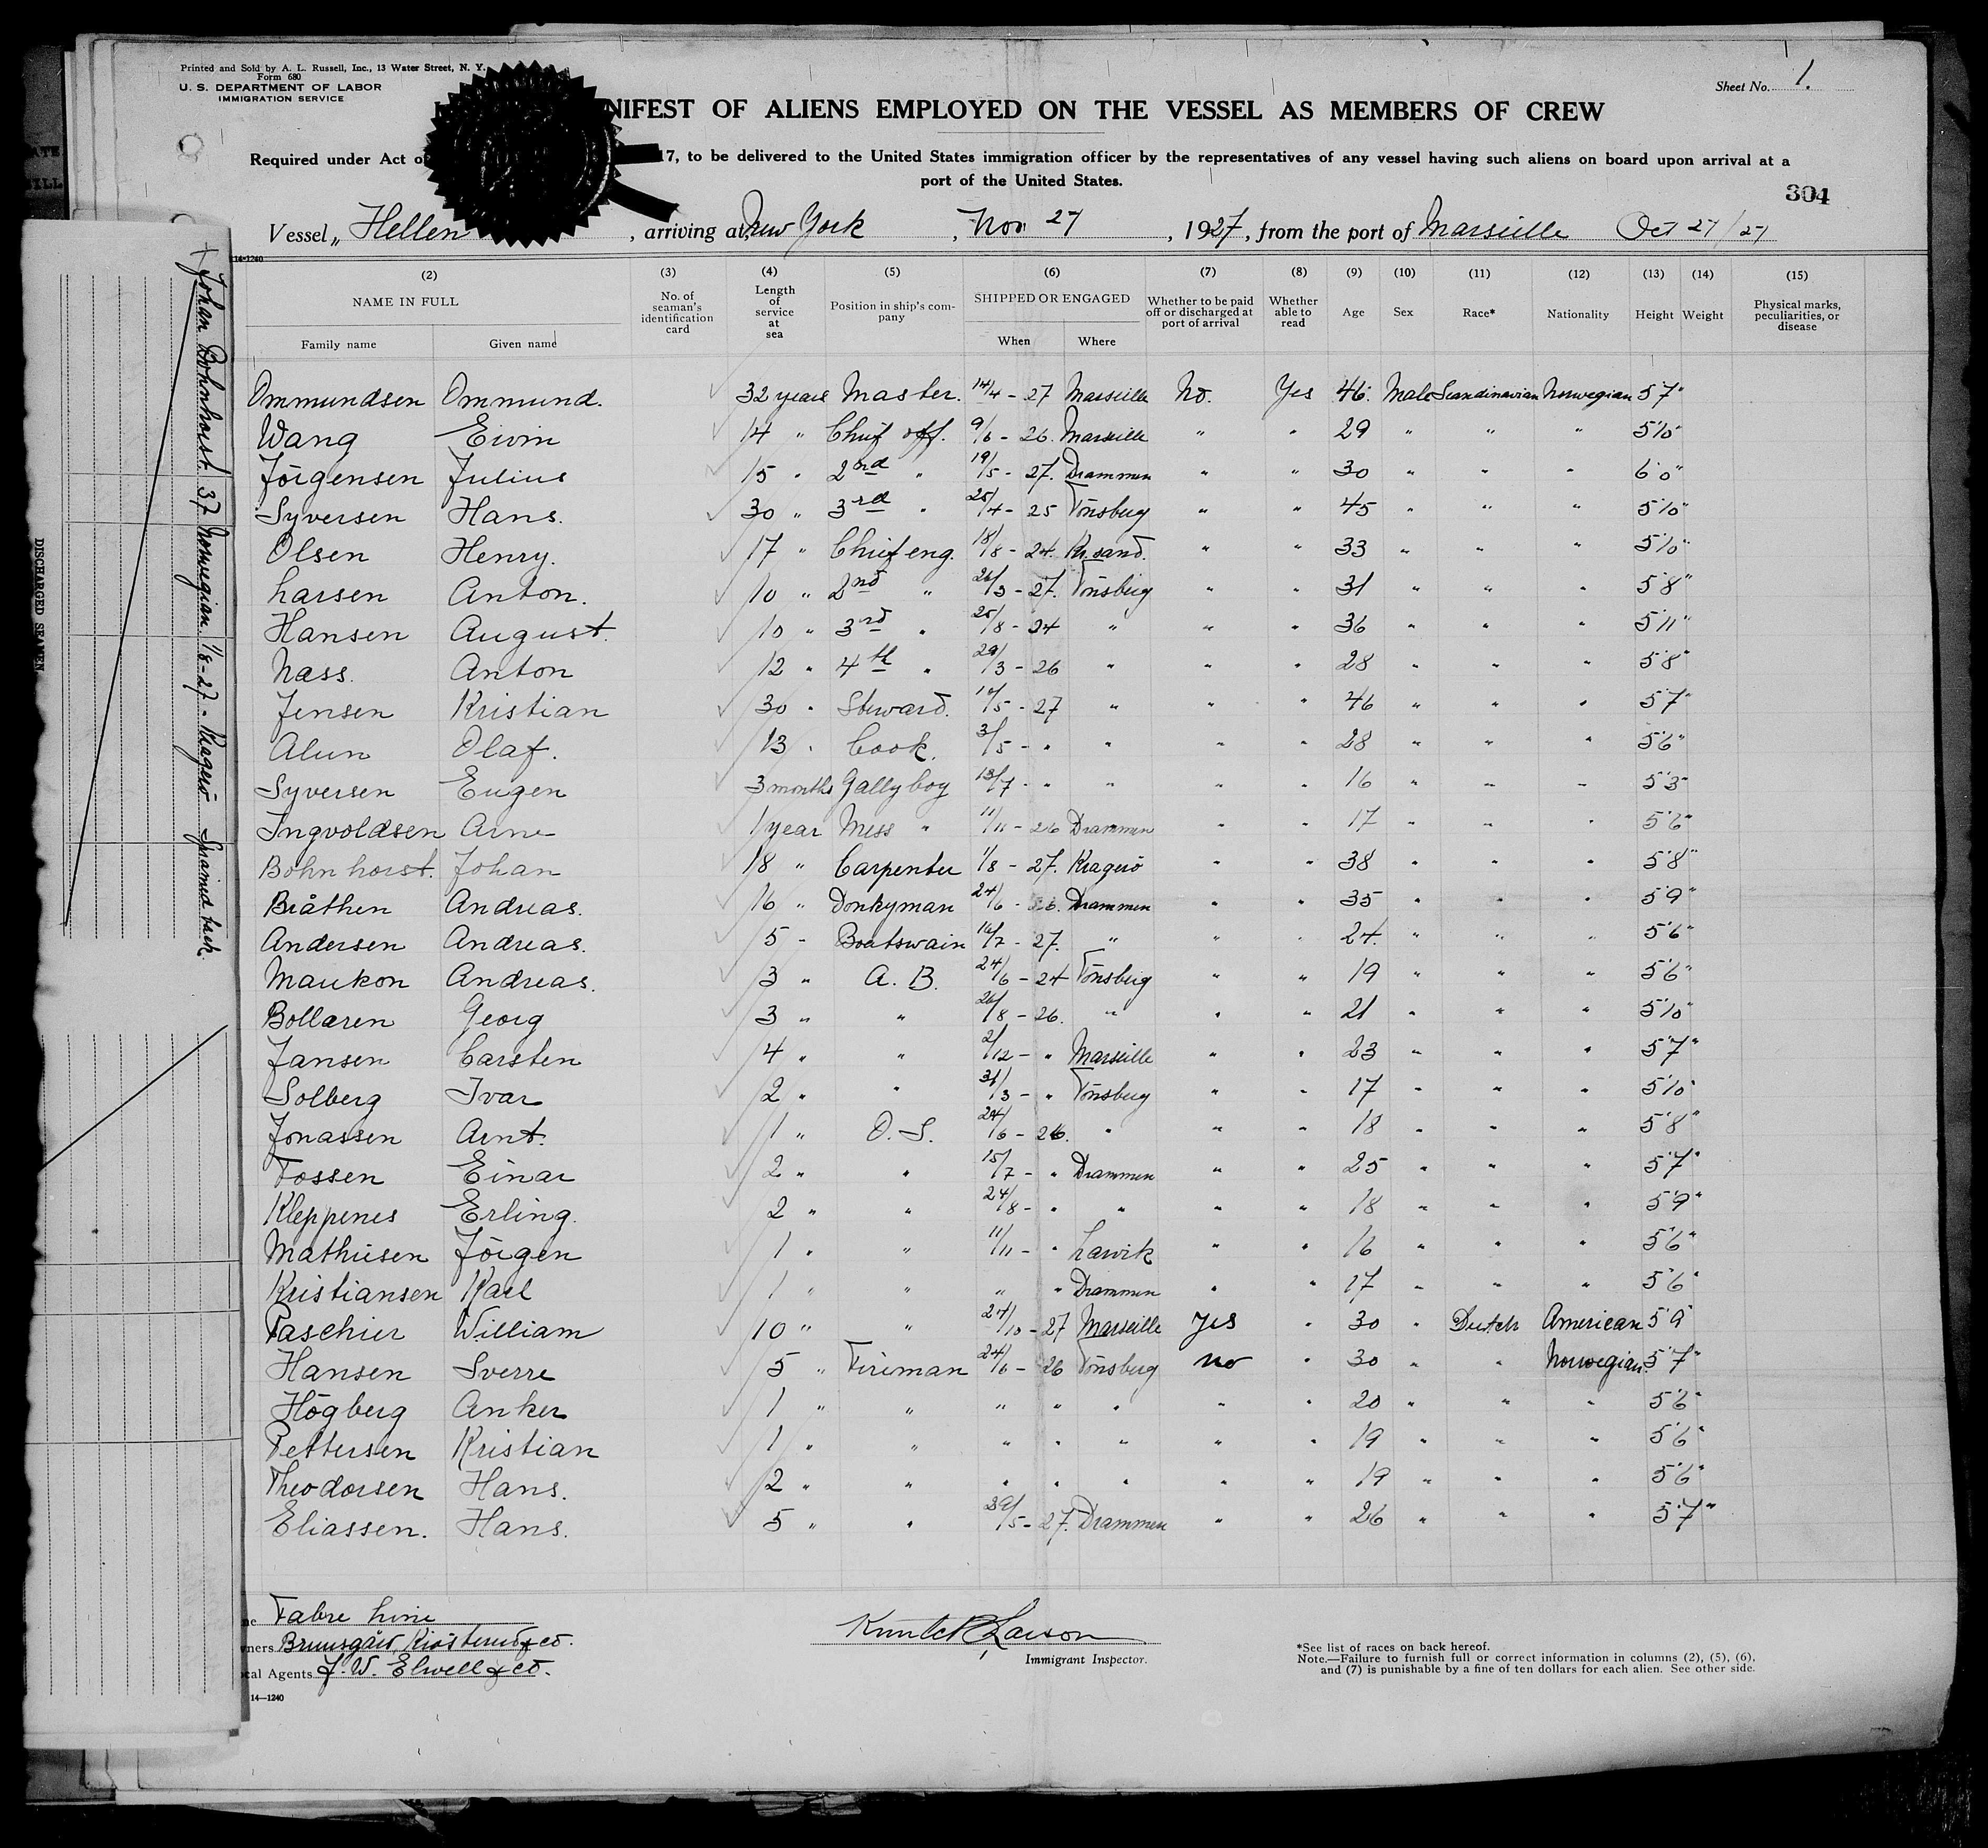 Printed and Sold by A. L. Russell, Inc., 13 Water Street, N. Y.
Form 680
U. S. DEPARTMENT OF LABOR
IMMIGRATION SERVICE
Sheet No. 1.
NIFEST OF ALIENS EMPLOYED ON THE VESSEL AS MEMBERS OF CREW
Required under Act o 17, to be delivered to the United States immigration officer by the representatives of any vessel having such aliens on board upon arrival at a
port of the United States.
304
Vessel „ Hellen , arriving at New York , Nov 27 , 1927, from the port of Marseille Oct 27/27
14-1240
(2) (3) (4) (5) (6) (7) (8) (9) (10) (11) (12) (13) (14) (15)
NAME IN FULL No. of seaman's identification card Length of service at sea Position in ship's company SHIPPED OR ENGAGED Whether to be paid off or discharged at port of arrival Whether able to read Age Sex Race* Nationality Height Weight Physical marks, peculiarities, or disease
Family name Given name When Where
Ommundsen Ommund. 32 years Master. 14/4 - 27 Marseille No. Yes 46. Male Scandinavian Norwegian 5'7"
Wang Eivin 14 " Chief off. 9/6 - 26. Marseille " " 29 " " " 5'10"
Jörgensen Julius 15 " 2nd " 19/5 - 27. Drammen " " 30 " " " 6'0"
Syversen Hans. 30 " 3rd " 25/4 - 25 Tönsberg " " 45 " " " 5'10"
Olsen Henry. 17 " Chief eng. 18/8 - 24. Kr.sand. " " 33 " " " 5'10"
Larsen Anton. 10 " 2nd " 26/3 - 27. Tönsberg " " 31 " " " 5'8"
Hansen August. 10 " 3rd " 25/8 - 24 " " " 36 " " " 5'11"
Næss. Anton 12 " 4th " 29/3 - 26 " " " 28 " " " 5'8"
Jensen Kristian 30 " Steward. 10/5 - 27 " " " 46 " " " 5'7"
Alun Olaf. 13 " Cook. 3/5 - " " " " 28 " " " 5'6"
Syversen Eugen 3 months Gally boy 13/7 - " " " " 16 " " " 5'3"
Ingvoldsen Arne 1 year Mess " 11/11 - 26 Drammen " " 17 " " " 5'6"
Bohnhorst. Johan 18 " Carpenter 1/8 - 27. Kragerö " " 38 " " " 5'8"
Bråthen Andreas. 16 " Donkyman 24/6 - 26. Drammen " " 35 " " " 5'9"
Andersen Andreas. 5 " Boatswain 16/7 - 27. " " " 24. " " " 5'6"
Maukon Andreas. 3 " A. B. 24/6 - 24 Tönsberg " 19 " " " 5'6"
Bollaren Georg 3 " " 26/8 - 26. " " " 21 " " " 5'10"
Jansen Carsten 4 " " 2/12 - " Marseille " " 23 " " " 5'7"
Solberg Ivar 2 " " 31/3 - " Tönsberg " " 17 " " " 5'10"
Jonassen Arnt. 1 " O. S. 24/6 - 26. " " " 18 " " " 5'8"
Fossen Einar 2 " " 15/7 - " Drammen " " 25 " " " 5'7"
Kleppenes Erling. 2 " " 24/8 - " " " " 18 " " " 5'9"
Mathiesen Jörgen 1 " " 11/11 - " Larvik " " 16 " " " 5'6"
Kristiansen Karl 1 " " " " Drammen " " 17 " " " 5'6"
Paschier William 10 " " 27/10 - 27 Marseille Yes " 30 " Dutch American 5'9"
Hansen Sverre 5 " Fireman 24/6 - 26 Tönsberg No " 30 " " Norwegian 5'7"
Högberg Anker 1 " " " " " " " 20 " " " 5'6"
Pettersen Kristian 1 " " " " " " " 19 " " " 5'6"
Theodorsen Hans. 2 " " " " " " " 19 " " " 5'6"
Eliassen. Hans. 5 " " /5 - 27. Drammen " " 26 " " " 5'7"
ne Fabre Line
ners Bruusgård, Kiösterud & co.
cal Agents J. W. Elwell & co.
14—1240
Immigrant Inspector.
*See list of races on back hereof.
Note.—Failure to furnish full or correct information in columns (2), (5), (6),
and (7) is punishable by a fine of ten dollars for each alien. See other side.
Johan Bohnhorst. 37 Norwegian. 1/8-27. Kragerö Sprained back.
DISCHARGED SEAMEN